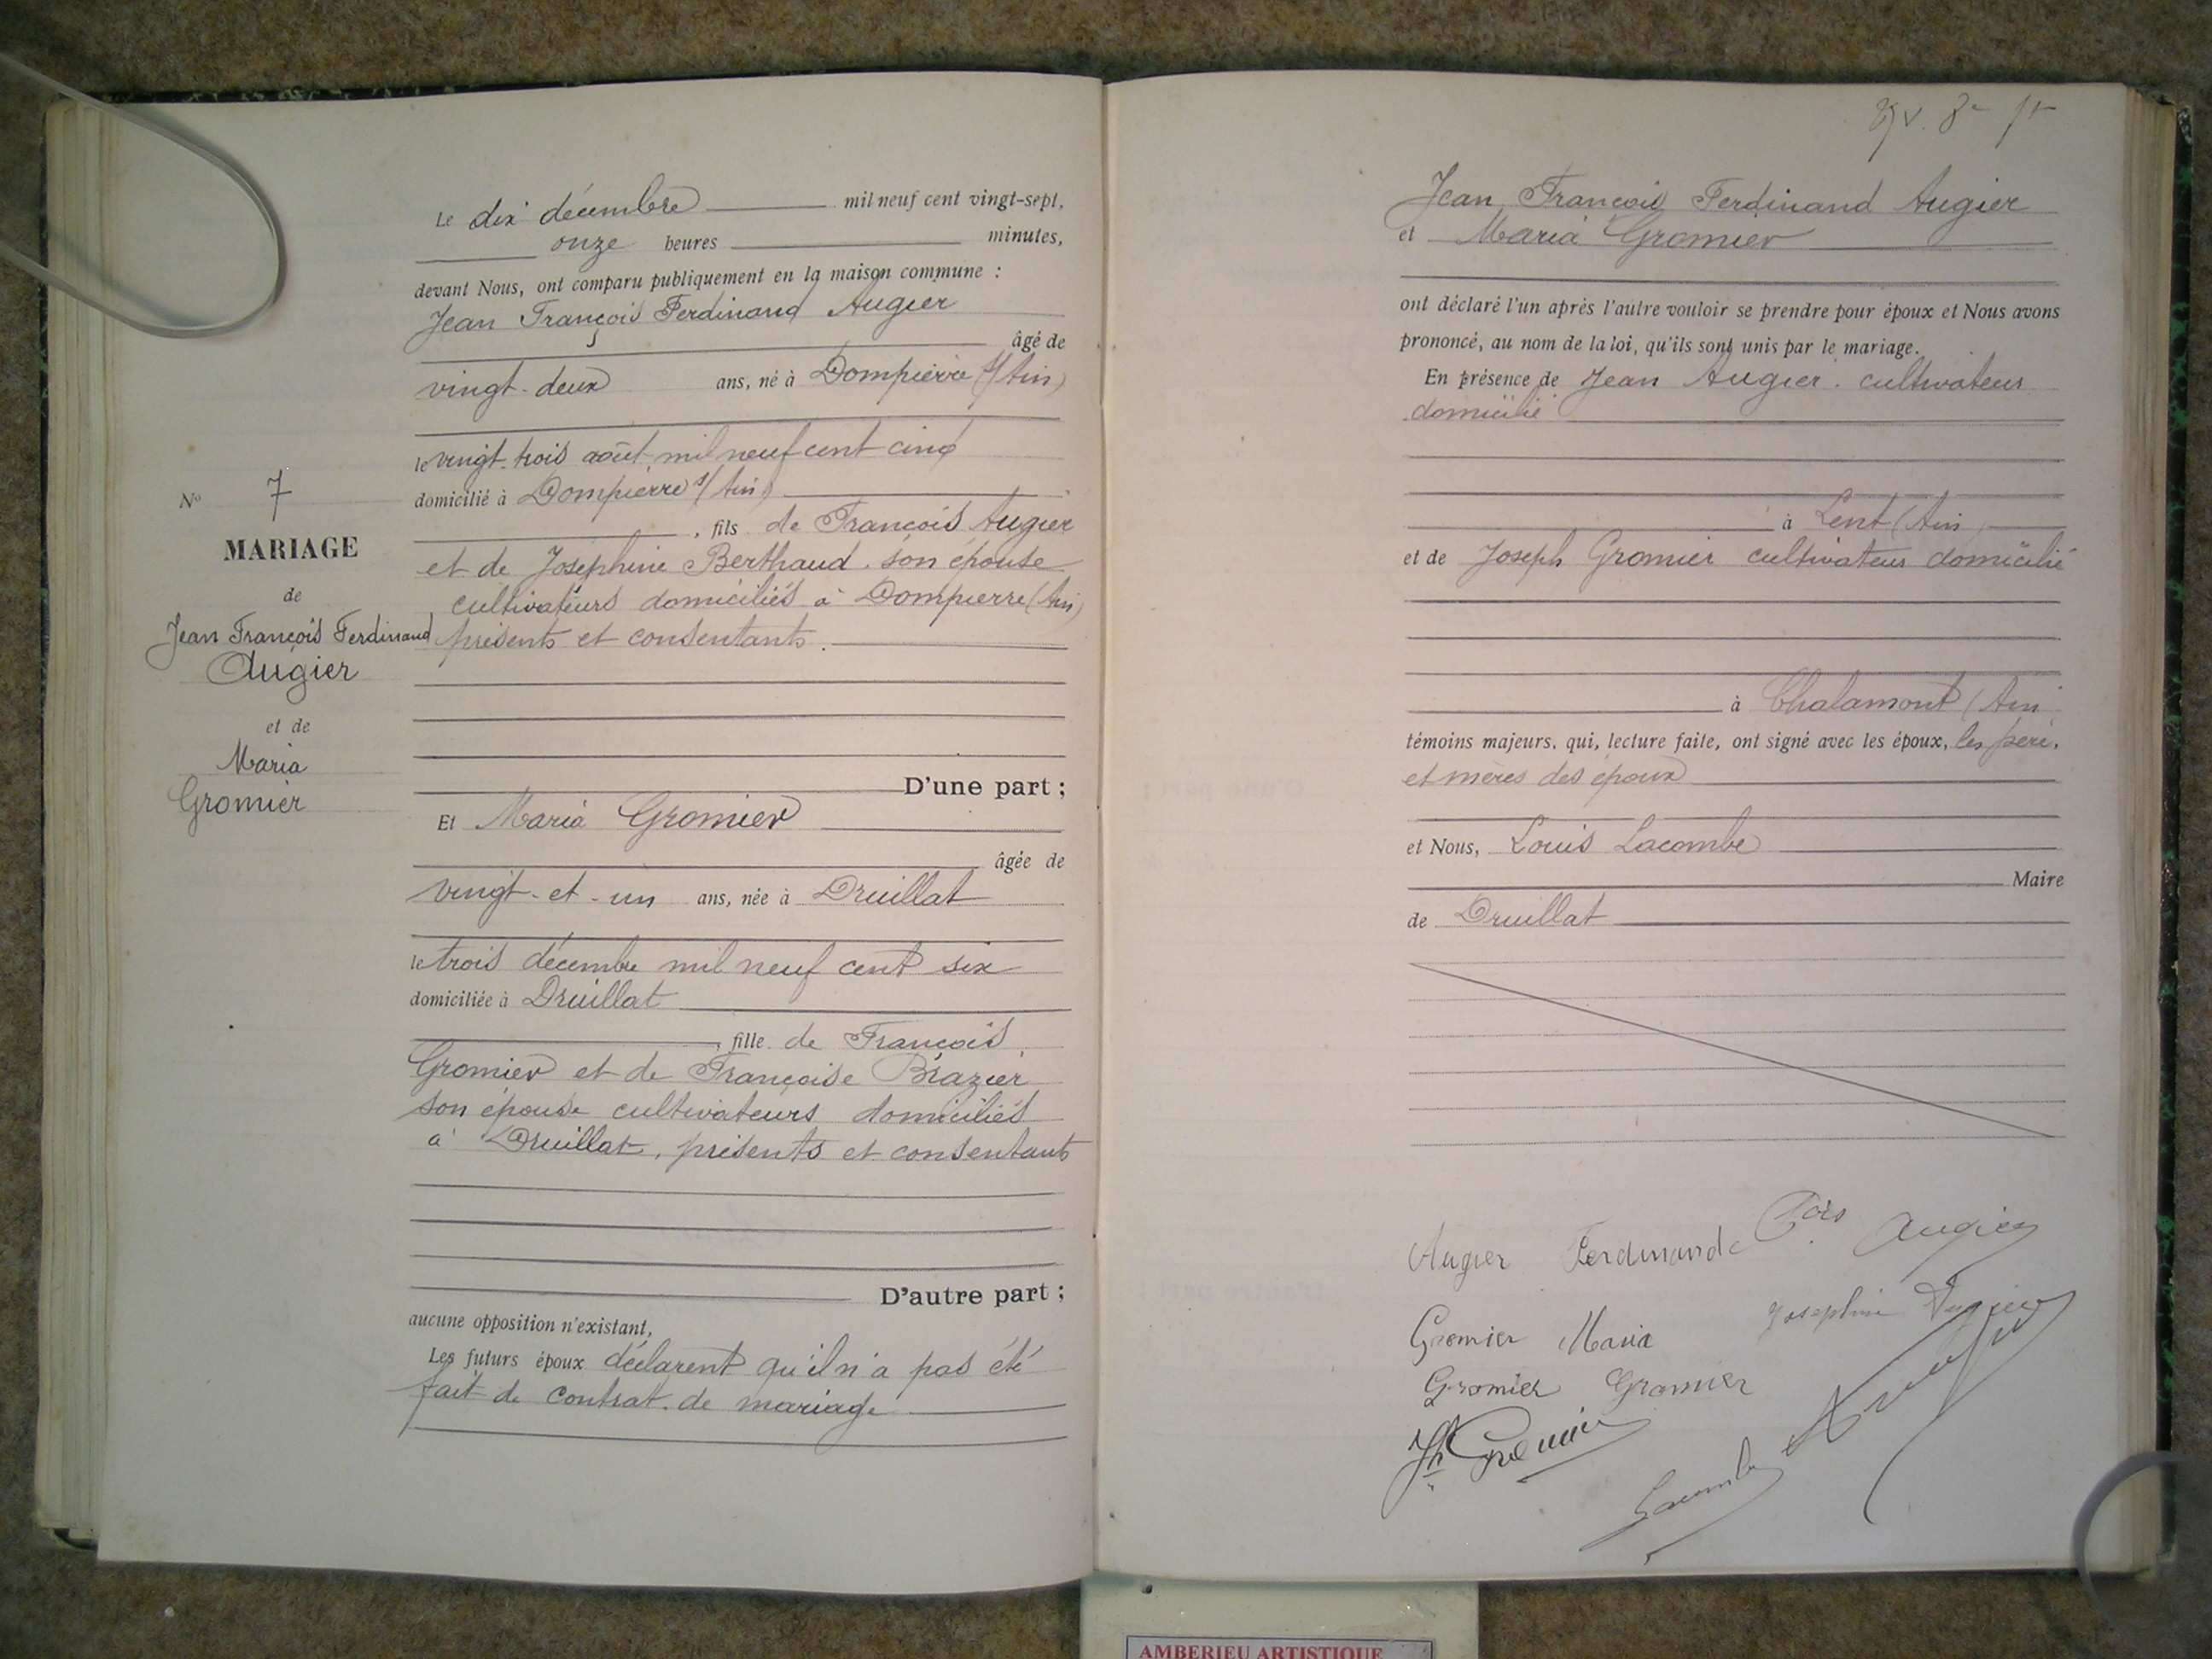 Le dix décembre mil neuf cent vingt-sept,
onze heures minutes,
devant Nous, ont comparu publiquement en la maison commune :
Jean François Ferdinand Augier
âgé de
vingt-deux ans, né à Dompierre s/ Ain)
le vingt-trois août mil neuf cent cinq
domicilié à Dompierre s/ Ain)
, fils de François Augier
et de Joséphine Berthaud son épouse
cultivateurs domiciliés à Dompierre (Ain)
présents et consentants.
N° 7
MARIAGE
de
Jean François Ferdinand
Augier
et de
Maria
Gromier
D'une part ;
Et Maria Gromier
âgée de
vingt-et-un ans, née à Druillat
le trois décembre mil neuf cent six
domiciliée à Druillat
, fille de François
Gromier et de Françoise Brazier
son épouse cultivateurs domiciliés
à Druillat, présents et consentants
D'autre part ;
aucune opposition n'existant,
Les futurs époux déclarent qu'il n'a pas été
fait de contrat de mariage
Jean François Ferdinand Augier
et Maria Gromier
ont déclaré l'un après l'autre vouloir se prendre pour époux et Nous avons
prononcé, au nom de la loi, qu'ils sont unis par le mariage.
En présence de Jean Augier. cultivateur
domicilié
à Lent (Ain)
et de Joseph Gromier cultivateur domicilié
à Chalamont (Ain
témoins majeurs, qui, lecture faite, ont signé avec les époux, les père,
et mères des époux
et Nous, Louis Lacombe
Maire
de Druillat
Augier Ferdinand
Augier
Gromier Maria
Joséphine Augier
Gromier Gromier
Jh Gromier
Lacombe
AMBERIEU ARTISTIQUE